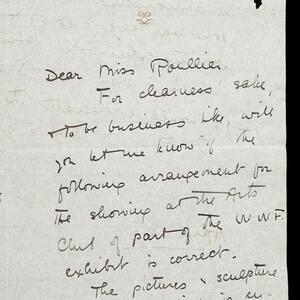 Dear Miss Roullier.
For clearness sake,
& to be business like, will
you let me know if the
following arrangement for
the showing at the Arts
Club of part of the W.W.F.
exhibit is correct.
The pictures & sculpture